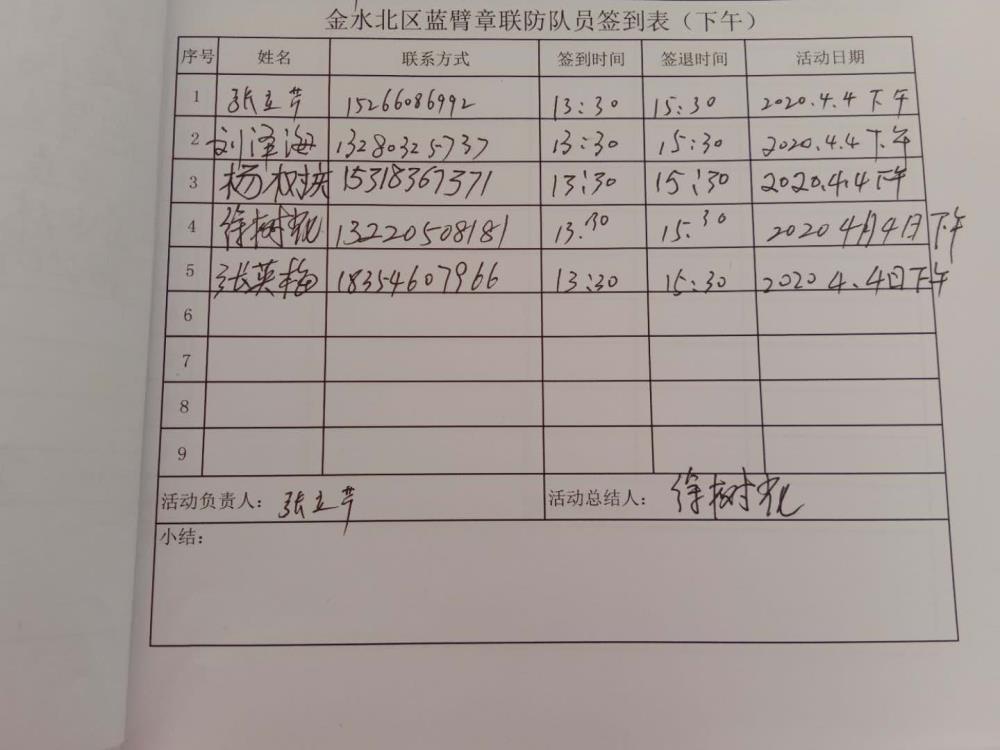 金水北区蓝臂章联防队员签到表（下午）
序号 姓名 联系方式 签到时间 签退时间 活动日期
1 张立芹 15266086992 13:30 15:30 2020.4.4 下午
2 刘泽海 13280325737 13:30 15:30 2020.4.4 下午
3 杨树 15318367371 13:30 15:30 2020.4.4下午
4 徐树 13220508181 13.30 15.30 2020 4月4日 下午
5 张英梅 18354607966 13:30 15:30 2020 4.4日下午
6
7
8
9
活动负责人：张立芹 活动总结人：徐树
小结：